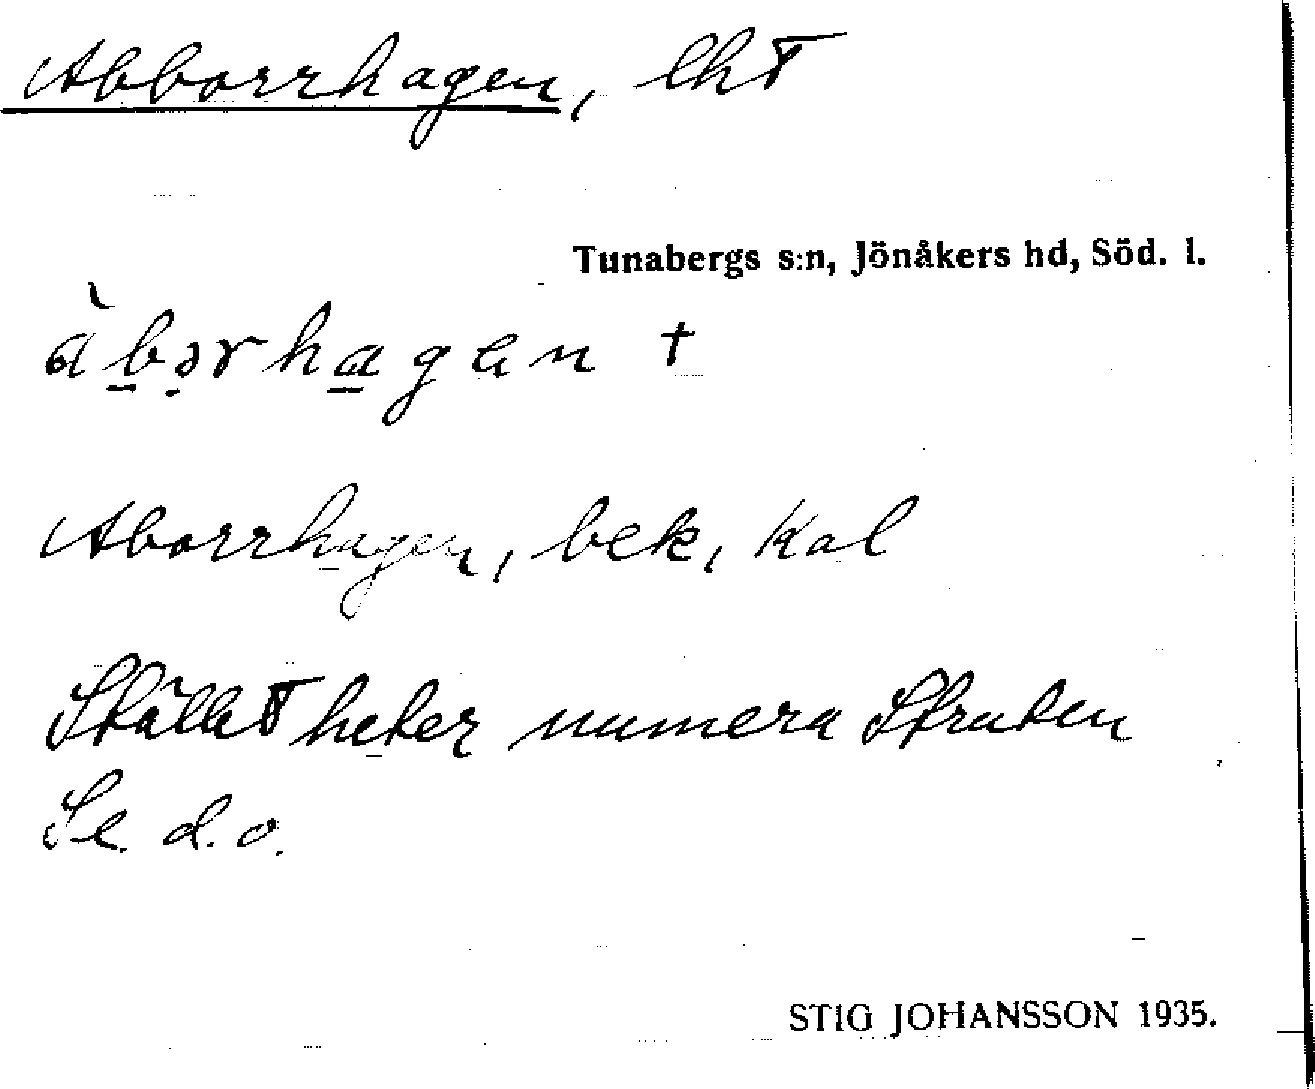 Abborrhagen, lht
Tunabergs s:n, Jönåkers hd, Söd. l.
àbərhagen †
Aborrhagen, bek, Kol
Stället heter numera Struten
Se d.o.
STIG JOHANSSON 1935.